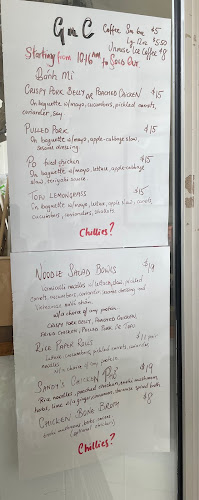 G n C
Coffee Sm 6oz $5
Lg 12oz $5.50
Vnmese Ice Coffee $8
Starting from 10:16 AM to Sold Out
Bánh Mì
Crispy Pork Belly or Poached Chicken $15
On baguette w/mayo, cucumbers, pickled carrots,
coriander, soy
Pulled Pork $15
On baguette w/mayo, apple-cabbage slaw,
sesame dressing
fried chicken $15
On baguette w/mayo, lettuce, apple-cabbage
slaw, teriyaki sauce
Tofu Lemongrass $15
On baguette w/mayo, lettuce, apple slaw, carrots,
cucumbers, coriander, shallots
Chillies?
Noodle Salad Bowls $19
Vermicelli noodles w/ lettuce, slaw, pickled
carrots, cucumbers, coriander, sesame dressing and
Vietnamese
w/a choice of any protein
Crispy Pork Belly, Poached Chicken,
Fried Chicken, Pulled Pork or Tofu
Rice Paper Rolls $11 pair
Lettuce, cucumbers, pickled carrots, coriander
noodles
w/a choice of any protein
Sandy's Chicken Pho $19
Rice noodles, poached chicken,
lime,
Chicken Bone Broth $8
(optional chillies)
Chillies?